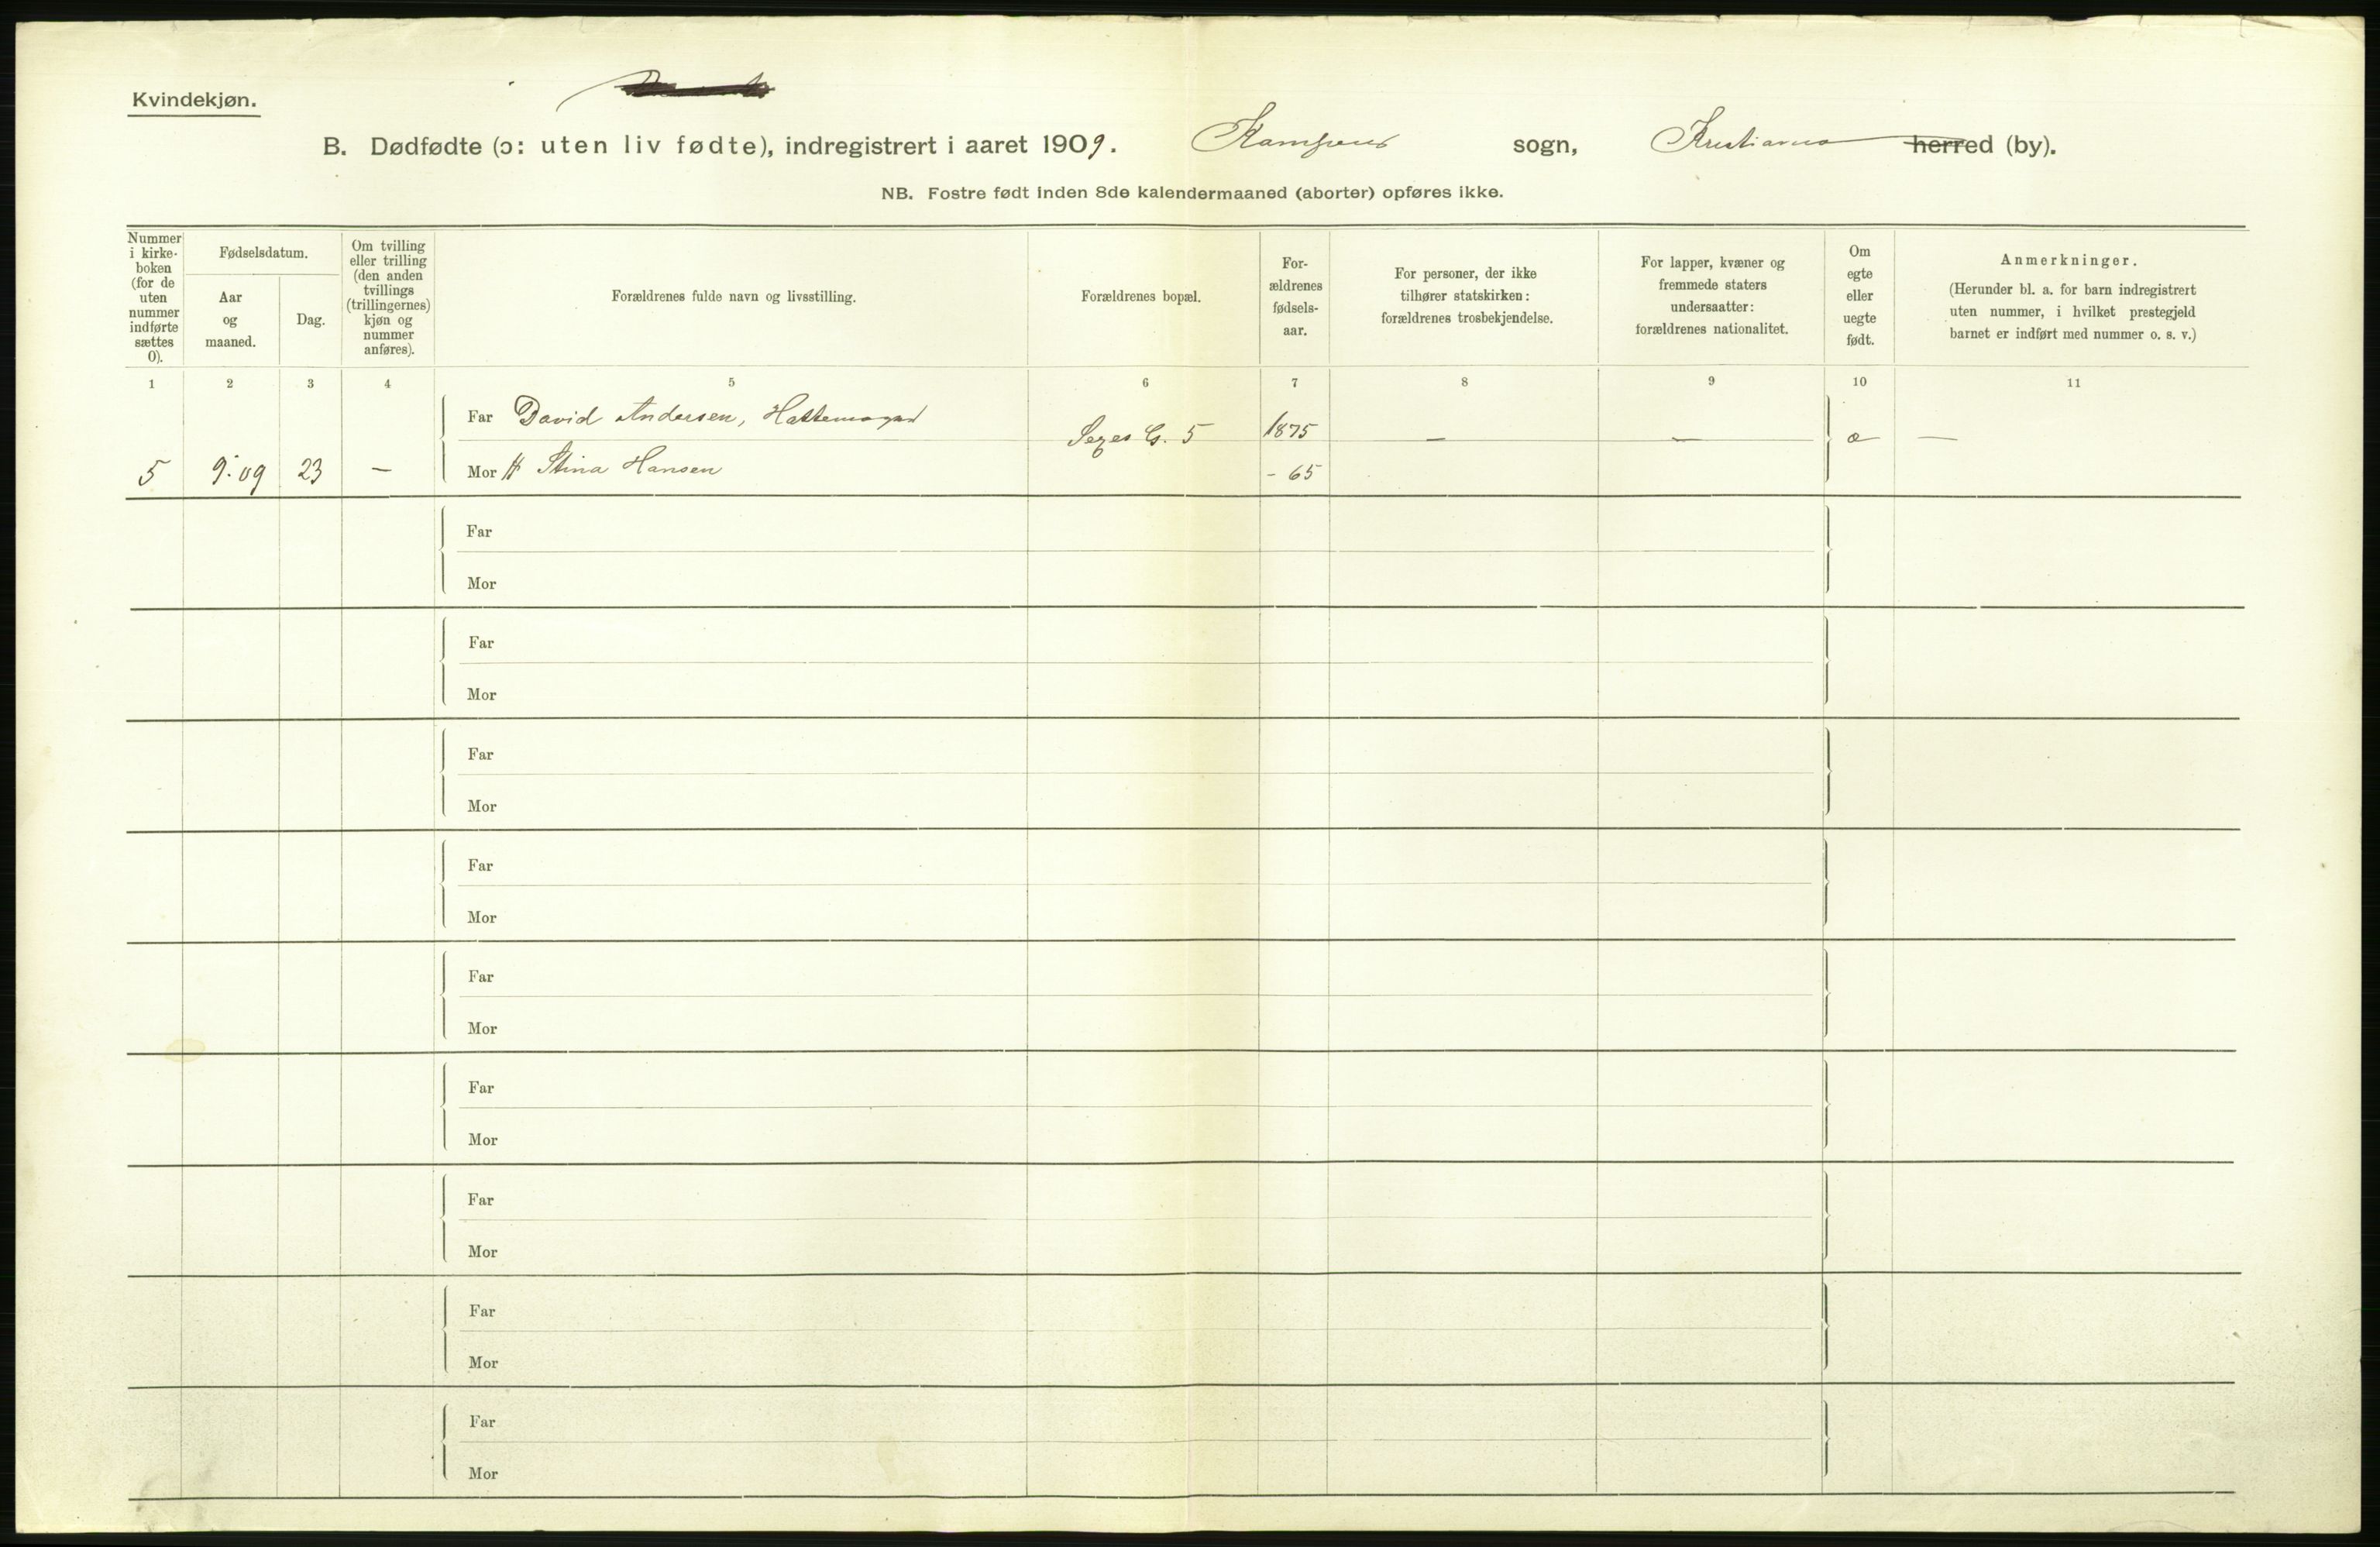 Kvindekjøn.
B. Dødfødte (ɔ: uten liv fødte), indregistrert i aaret 1909. Kampens sogn, Kristiania herred (by).
NB. Fostre født inden 8de kalendermaaned (aborter) opføres ikke.
Nummer
i kirke-
boken
(for de
uten
nummer
indførte
sættes
0).
Fødselsdatum.
Aar
og
maaned.
Dag.
Om tvilling
eller trilling
(den anden
tvillings
(trillingernes)
kjøn og
nummer
anføres).
Forældrenes fulde navn og livsstilling.
Forældrenes bopæl.
For-
ældrenes
fødsels-
aar.
For personer, der ikke
tilhører statskirken:
forældrenes trosbekjendelse.
For lapper, kvæner og
fremmede staters
undersaatter:
forældrenes nationalitet.
Om
egte
eller
uegte
født.
Anmerkninger.
(Herunder bl. a. for barn indregistrert
uten nummer, i hvilket prestegjeld
barnet er indført med nummer o. s. v.)
1 2 3 4 5 6 7 8 9 10 11
Far David Andersen, Hattemager
Seges G. 5 1875 — — —
5 9.09 23 — Mor H Stina Hansen - 65
Far
Mor
Far
Mor
Far
Mor
Far
Mor
Far
Mor
Far
Mor
Far
Mor
Far
Mor
Far
Mor